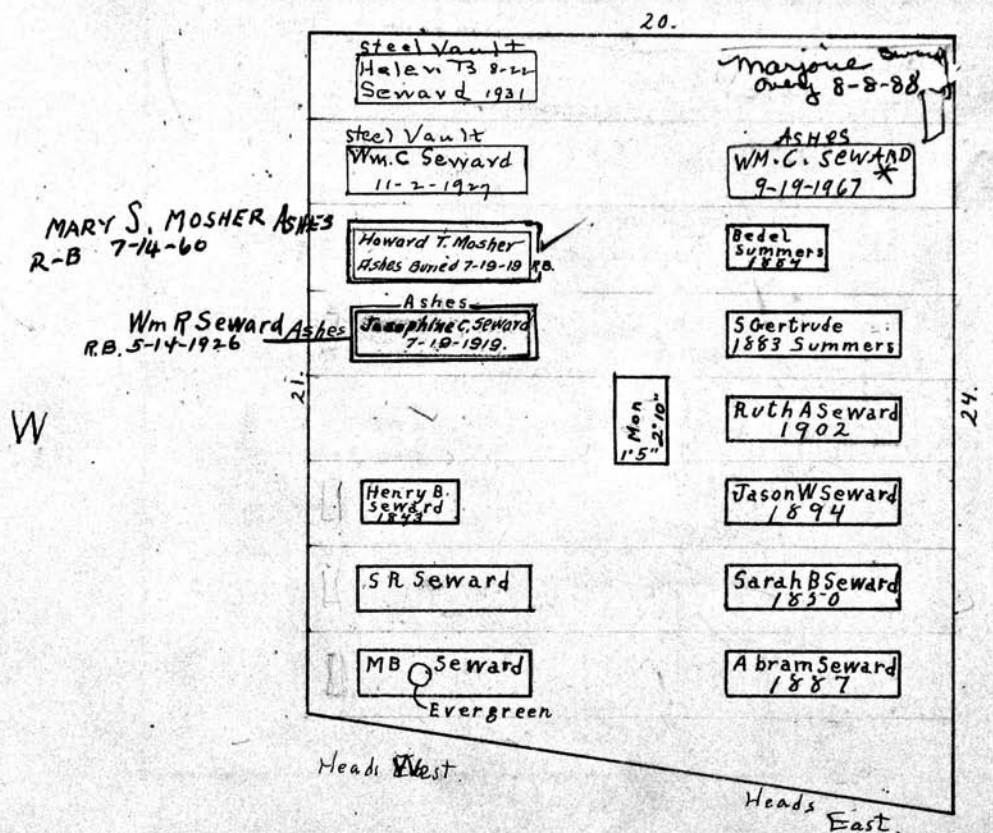 20.
Steel Vault
Helen B 8-22
Seward 1931
Marjorie
8-8-88
Steel Vault
Wm. C Seward
11-2-1927
ASHES
WM. C. SEWARD
*
9-19-1967
MARY S. MOSHER ASHES
R-B 7-14-60
Howard T. Mosher
Ashes Buried 7-19-19 R.B.
Bedel
Summers
1884
Wm R Seward Ashes
R.B. 5-14-1926
Ashes
Josephine C. Seward
7-19-1919.
S Gertrude
1883 Summers
21.
W
Mon
1'5" 2'10"
Ruth A Seward
1902
24.
Henry B.
Seward
1843
Jason W Seward
1894
S R Seward
Sarah B Seward
1850
MB Seward
Evergreen
Abram Seward
1887
Heads West.
Heads
East.